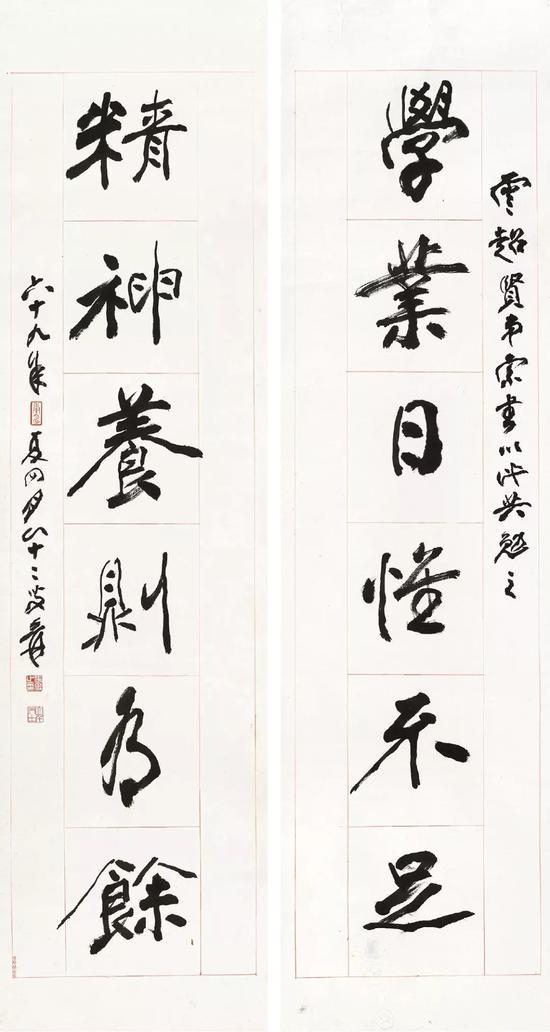 雲超賢弟索書以此共勉之
學業日惟不足
精神養則有餘
六十九年 夏四月八十二叟爰